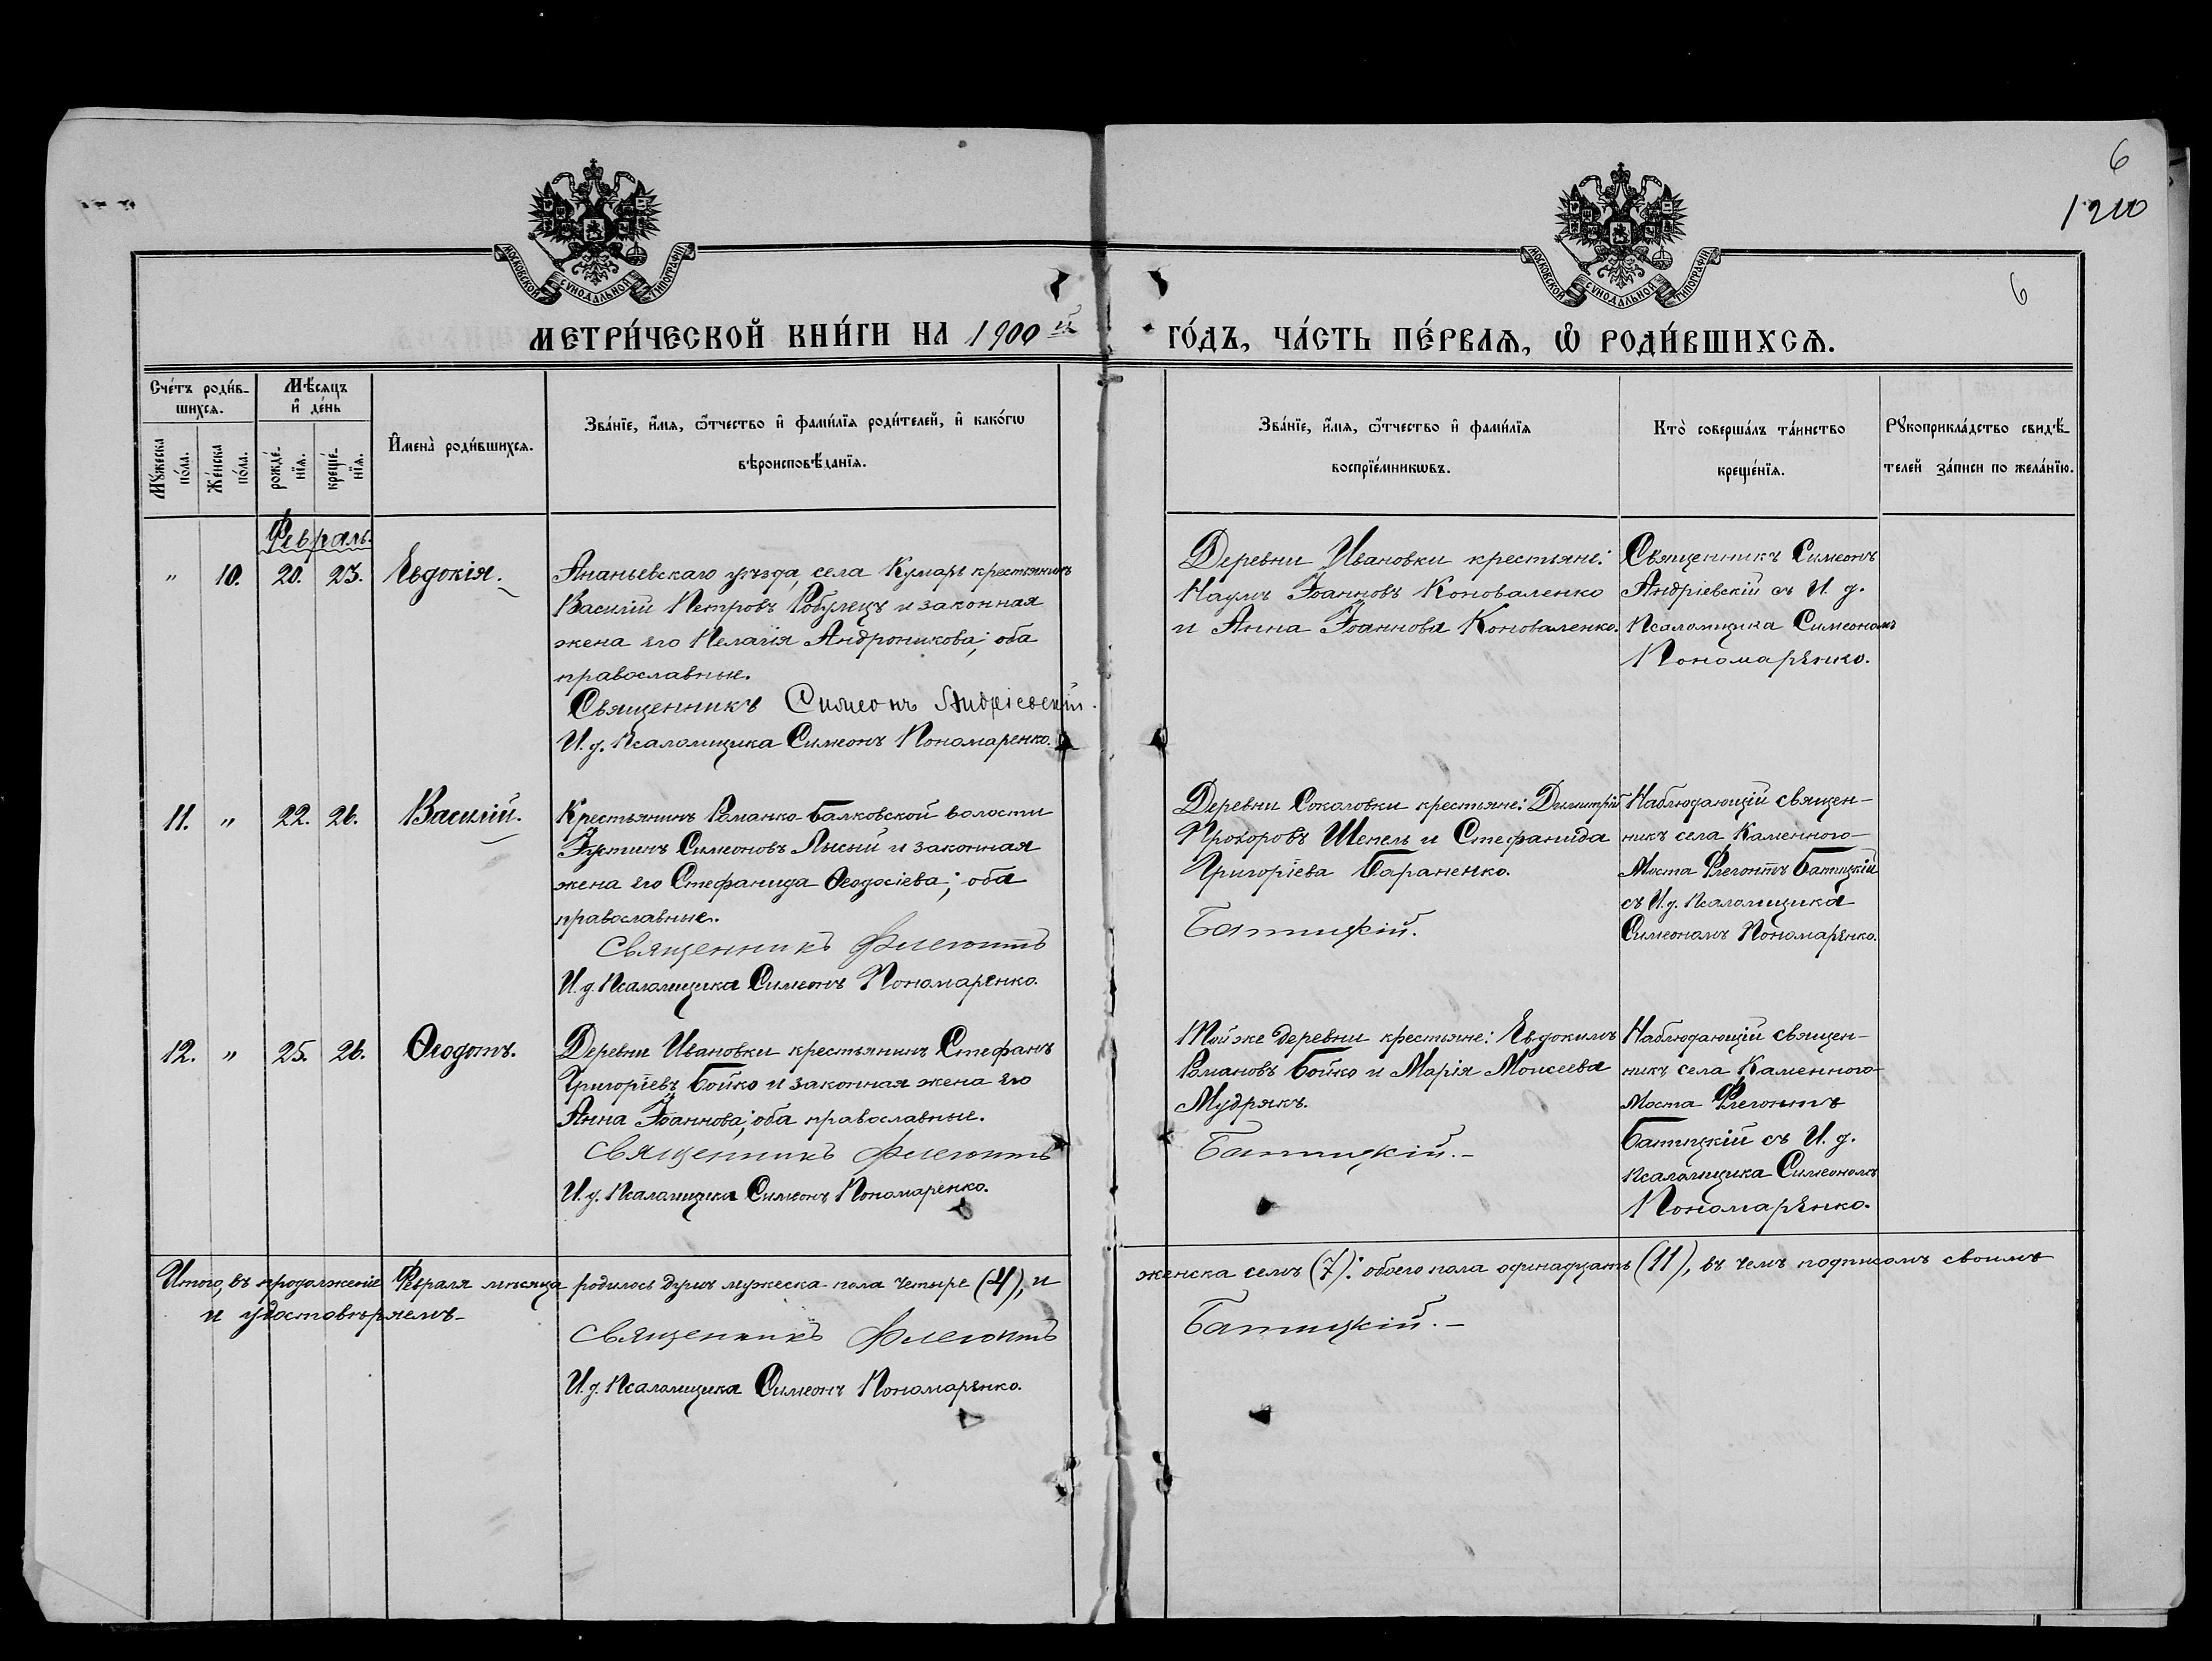 6
1210
6
МОСКОВСКОЙ СѴНОДАЛЬНОЙ ТИПОГРАФІИ
МОСКОВСКОЙ СѴНОДАЛЬНОЙ ТИПОГРАФІИ
МЕТРИ́ЧЕСКОЙ КНИ́ГИ НА 1900 й ГО́ДЪ, ЧА́СТЬ ПЕ́РВАѦ, Ѡ҆ РОДИ́ВШИХСѦ.
Сче́тъ роди́в-
шихсѧ.
Мꙋ́жеска
по́ла.
Же́нска
по́ла.
Мѣ́сѧцъ
и҆ де́нь
рожде́-
нїѧ.
креще́-
нїѧ.
И҆мена̀ роди́вшихсѧ.
Зва́нїе, и҆́мѧ, ѻ҆́тчество и҆ фами́лїѧ роди́телей, и҆ како́гѡ
вѣроисповѣ́данїѧ.
Зва́нїе, и҆́мѧ, ѻ҆́тчество и҆ фами́лїѧ
воспрїе́мникѡвъ.
Кто̀ соверша́лъ та́инство
креще́нїѧ.
Рꙋкоприкла́дство свидѣ́-
телей за́писи по жела́нїю.
Февраль.
" 10. 20. 23. Евдокія.
Ананьевскаго уѣзда, села Кумаръ крестьянинъ
Василій Петровъ Робулецъ и законная
жена его Пелагія Андроникова; оба
православные.
Священникъ Симеонъ Андріевскій.
И. д. Псаломщика Симеонъ Пономаренко.
Деревни Ивановки крестьяне:
Наумъ Іоанновъ Коноваленко
и Анна Іоаннова Коноваленко.
Священникъ Симеонъ
Андріевскій съ И. д.
Псаломщика Симеономъ
Пономаренко.
11. " 22. 26. Василій.
Крестьянинъ Романко-Балковской волости
Іустинъ Симеоновъ Лысый и законная
жена его Стефанида Ѳеодосіева; оба
православные.
Священникъ Флегонтъ
И. д. Псаломщика Симеонъ Пономаренко.
Деревни Соколовки крестьяне: Димитрій
Прохоровъ Шепель и Стефанида
Григоріева Бараненко.
Батицкій.
Наблюдающій священ-
никъ села Каменного-
Моста Флегонтъ Батицкій
съ И. д. Псаломщика
Симеономъ Пономаренко.
12. " 25. 26. Ѳеодотъ.
Деревни Ивановки крестьянинъ Стефанъ
Григоріевъ Бойко и законная жена его
Анна Іоаннова; оба православные.
Священникъ Флегонтъ
И. д. Псаломщика Симеонъ Пономаренко.
Той же деревни крестьяне: Евдокимъ
Романовъ Бойко и Марія Моисеева
Мудрякъ.
Батицкій.-
Наблюдающій священ-
никъ села Каменного-
Моста Флегонтъ
Батицкій съ И. д.
Псаломщика Симеономъ
Пономаренко.
Итого, въ продолженіе Февраля мѣсяца родилось душъ мужеска пола четыре (4), и женска семъ (7): обоего пола одинадцать (11), въ чемъ подписомъ своимъ
и удостовѣряемъ-
Священникъ Флегонтъ Батицкій.-
И. д. Псаломщика Симеонъ Пономаренко.